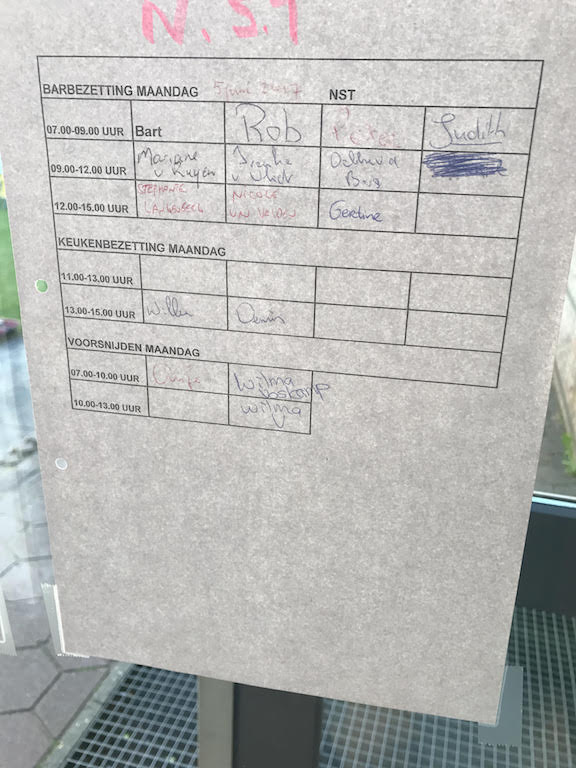 N.S.T
BARBEZETTING MAANDAG 5 juni 2017 NST
07.00-09.00 UUR Bart Rob Peter Judith
09.00-12.00 UUR Marianne v Kuyen
12.00-15.00 UUR STEPHANIE LANGENBACH NICOLE Gerdine
KEUKENBEZETTING MAANDAG
11.00-13.00 UUR
13.00-15.00 UUR Willem Dennis
VOORSNIJDEN MAANDAG
07.00-10.00 UUR Wilma Boskamp
10.00-13.00 UUR Wilma